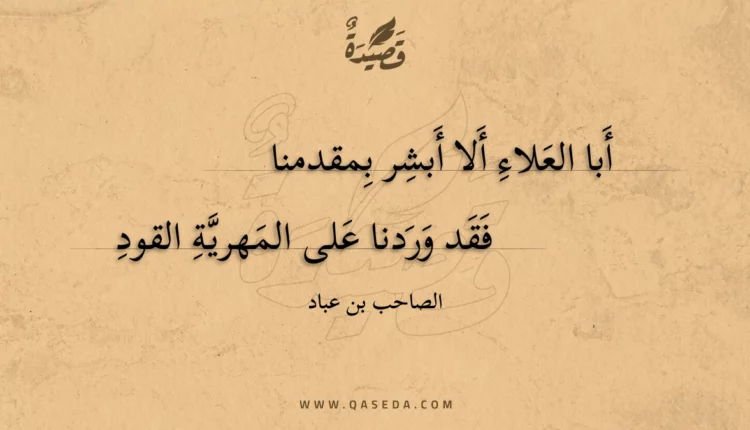 قَصِيْدَةٌ
أَبا العَلاءِ أَلا أَبشِر بِمقدمنا
فَقَد وَرَدنا عَلى المَهريَّةِ القودِ
الصاحب بن عباد
WWW.QASEDA.COM